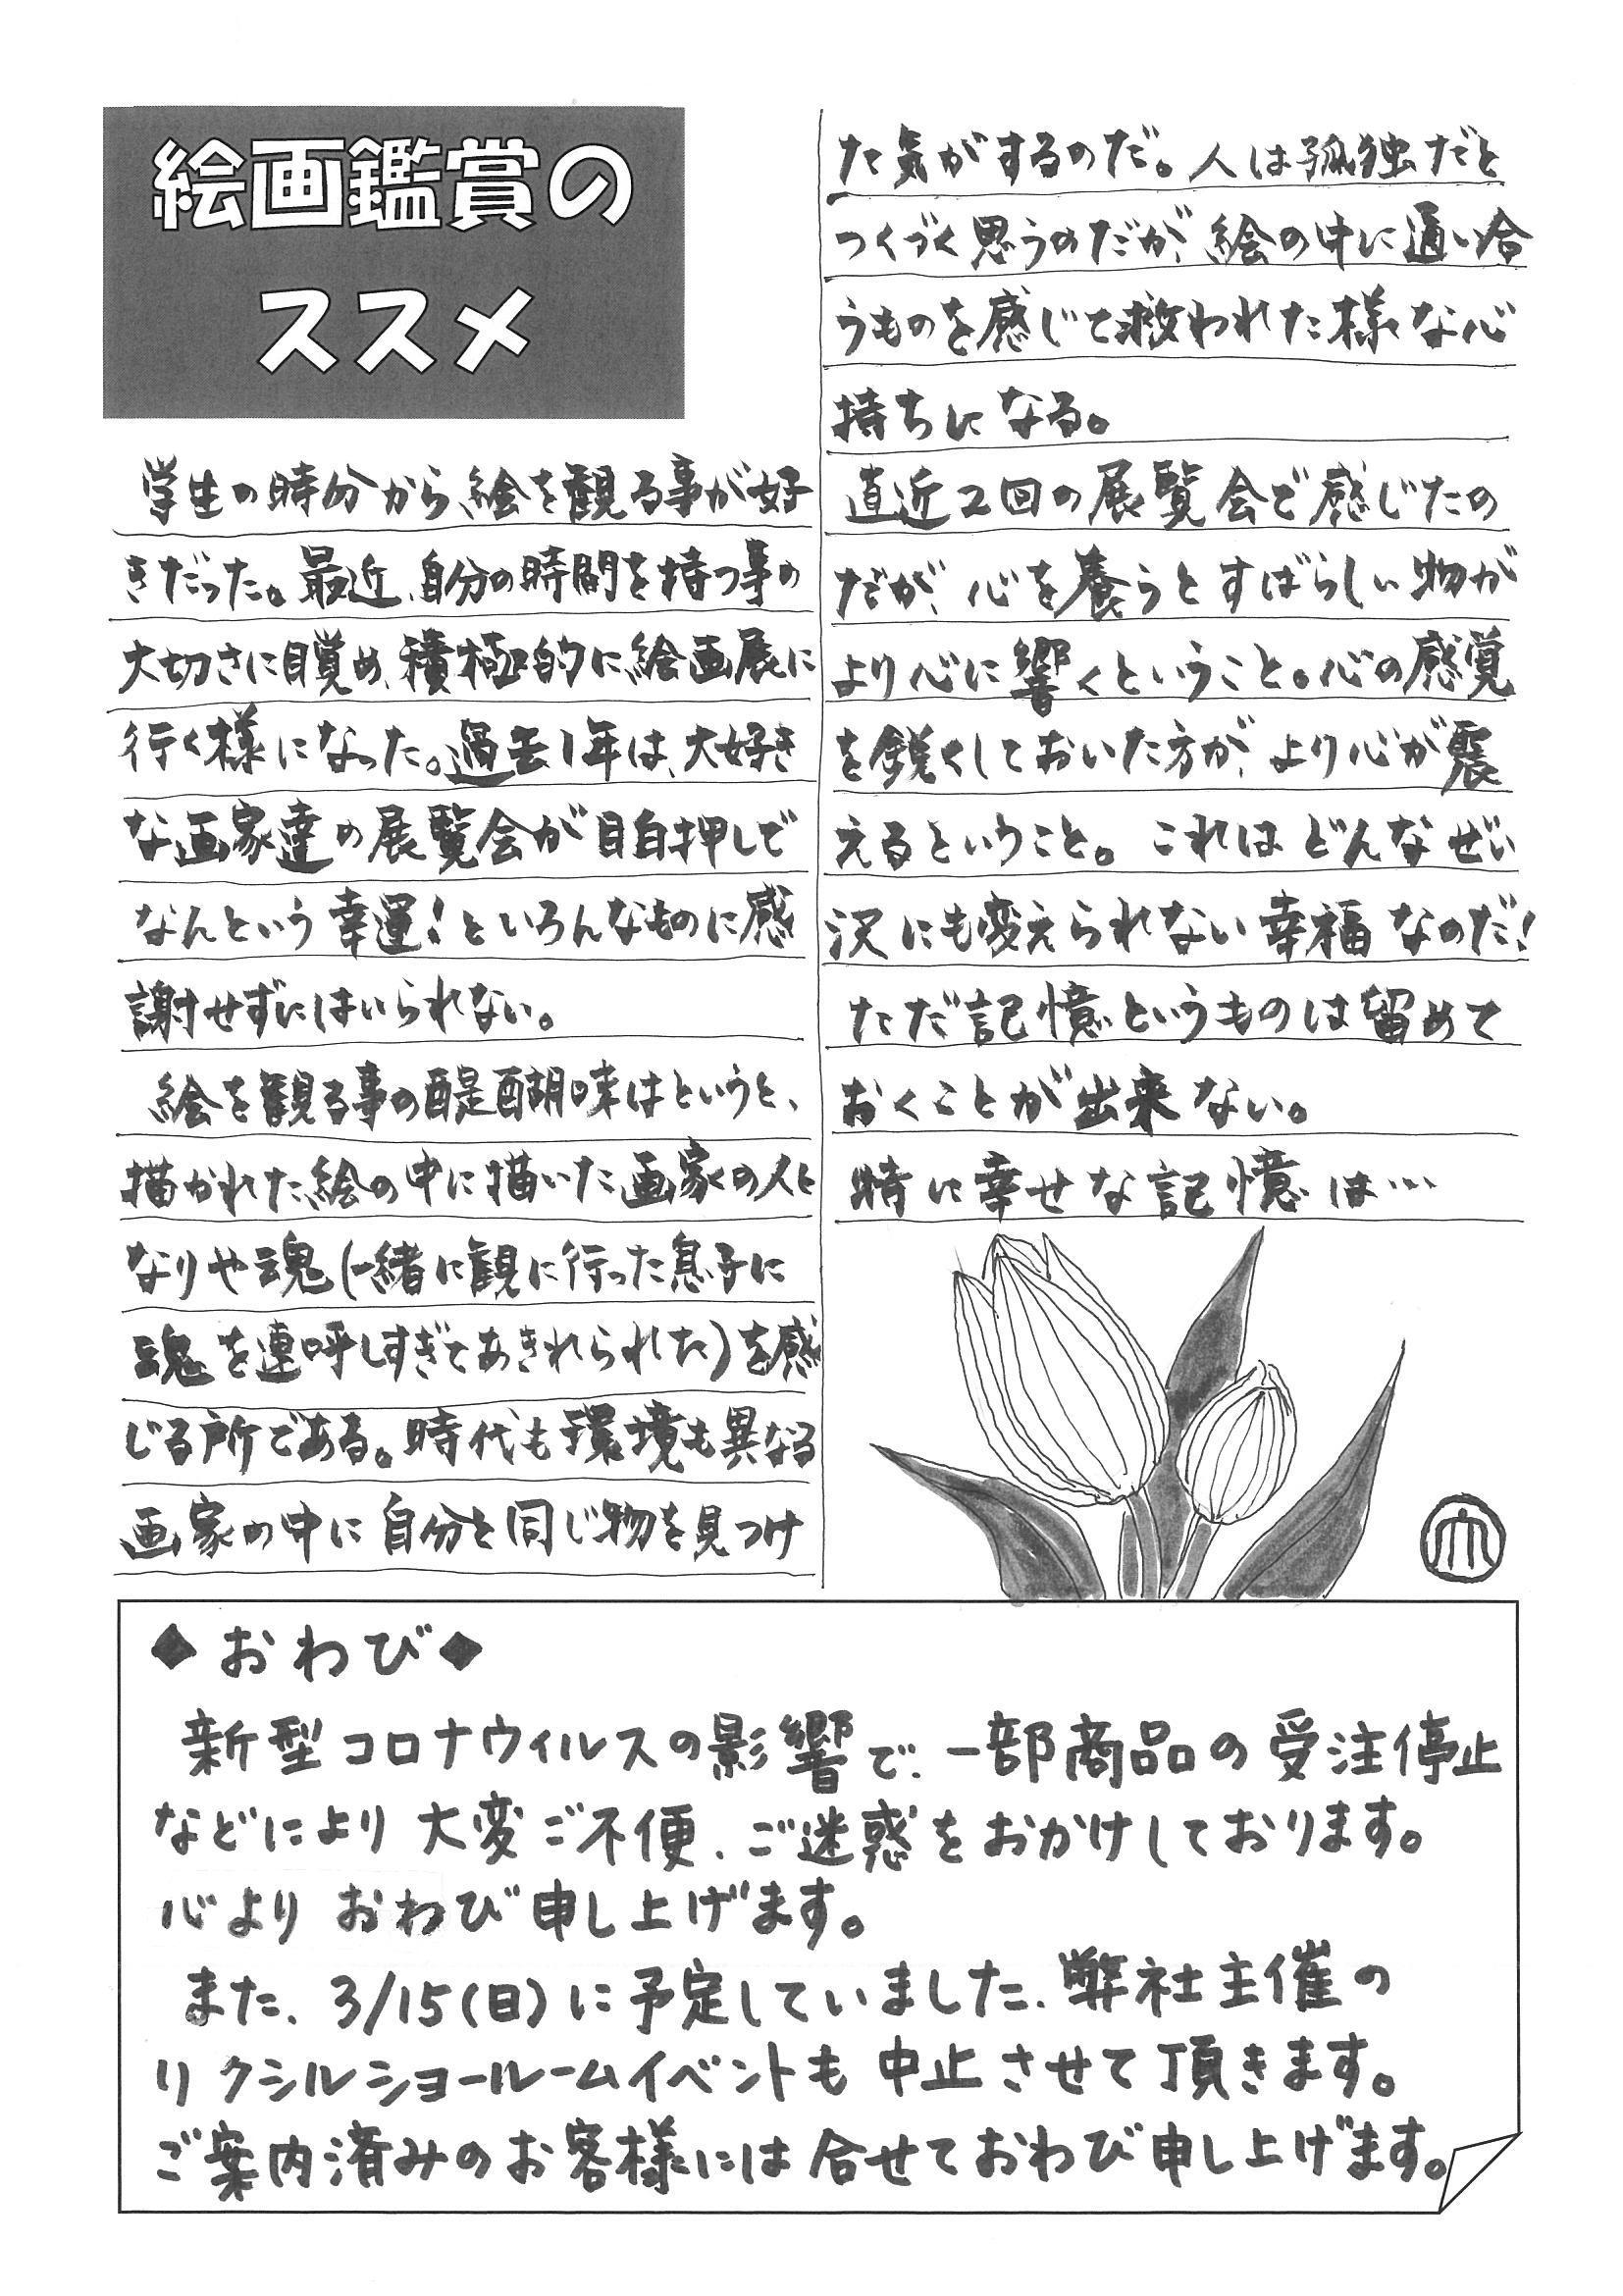 絵画鑑賞の
ススメ
学生の時分から絵を観る事が好
きだった。最近、自分の時間を持つ事の
大切さに目覚め、積極的に絵画展に
行く様になった。過去1年は、大好き
な画家達の展覧会が目白押しで
なんという幸運!といろんなものに感
謝せずにはいられない。
絵を観る事の醍醐味はというと、
描かれた絵の中に描いた画家の人と
なりや魂(一緒に観に行った息子に
魂を連呼しすぎてあきれられた)を感
じる所である。時代も環境も異なる
画家の中に自分と同じ物を見つけ
た気がするのだ。人は孤独だと
つくづく思うのだが、絵の中に通い合
うものを感じて救われた様な心
持ちになる。
直近2回の展覧会で感じたの
だが、心を養うとすばらしい物が
より心に響くということ。心の感覚
を鋭くしておいた方が、より心が震
えるということ。これはどんなぜい
沢にも変えられない幸福なのだ!
ただ記憶というものは留めて
おくことが出来ない。
時に幸せな記憶は…
◆おわび◆
新型コロナウィルスの影響で、一部商品の受注停止
などにより大変ご不便、ご迷惑をおかけしております。
心よりおわび申し上げます。
また、3/15(日)に予定していました、弊社主催の
リクシルショールームイベントも中止させて頂きます。
ご案内済みのお客様には合せておわび申し上げます。